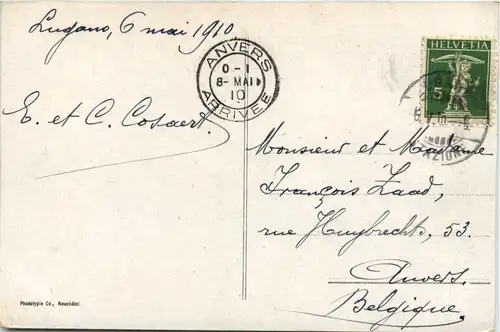 Lugano, 6 mai 1910
ANVERS
0-1
8-MAI
10
ARRIVEE
HELVETIA
5
STAZIONE
E. et C. Cosaert.
Monsieur et Madame
François Zaad,
rue Huybrechts, 53.
Anvers.
Belgique.
Phototypie Co., Neuchâtel.